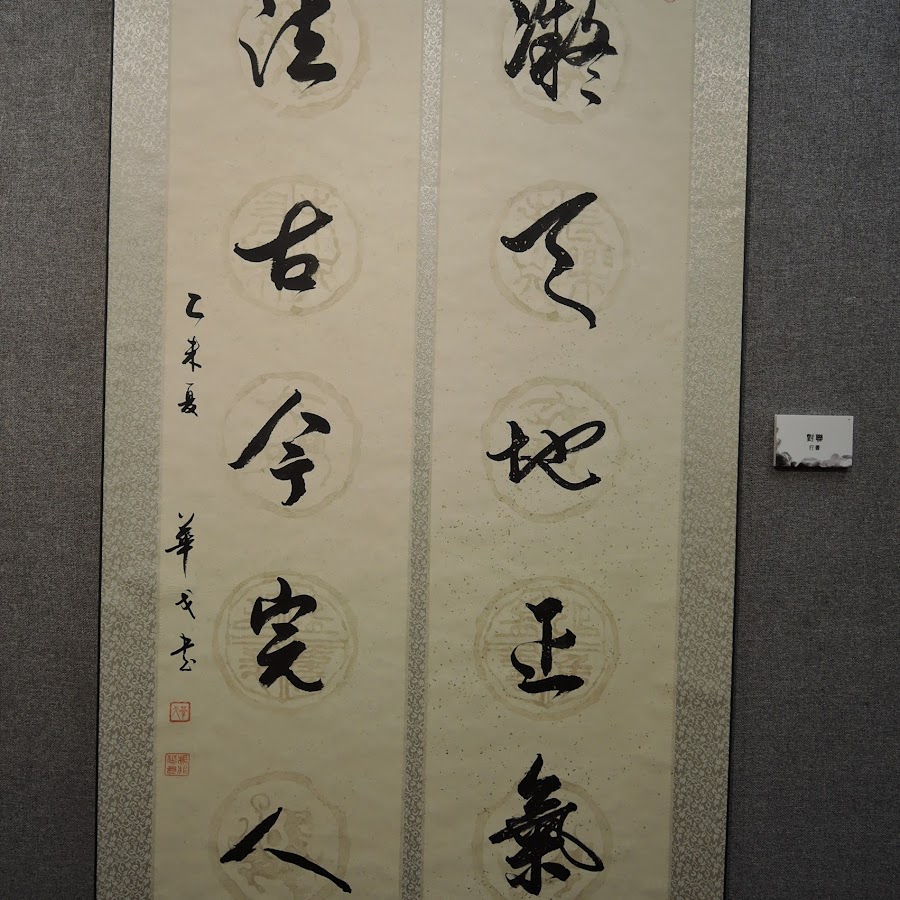 凝天地正氣
法古今完人
乙未夏
華戈书
對聯
行書